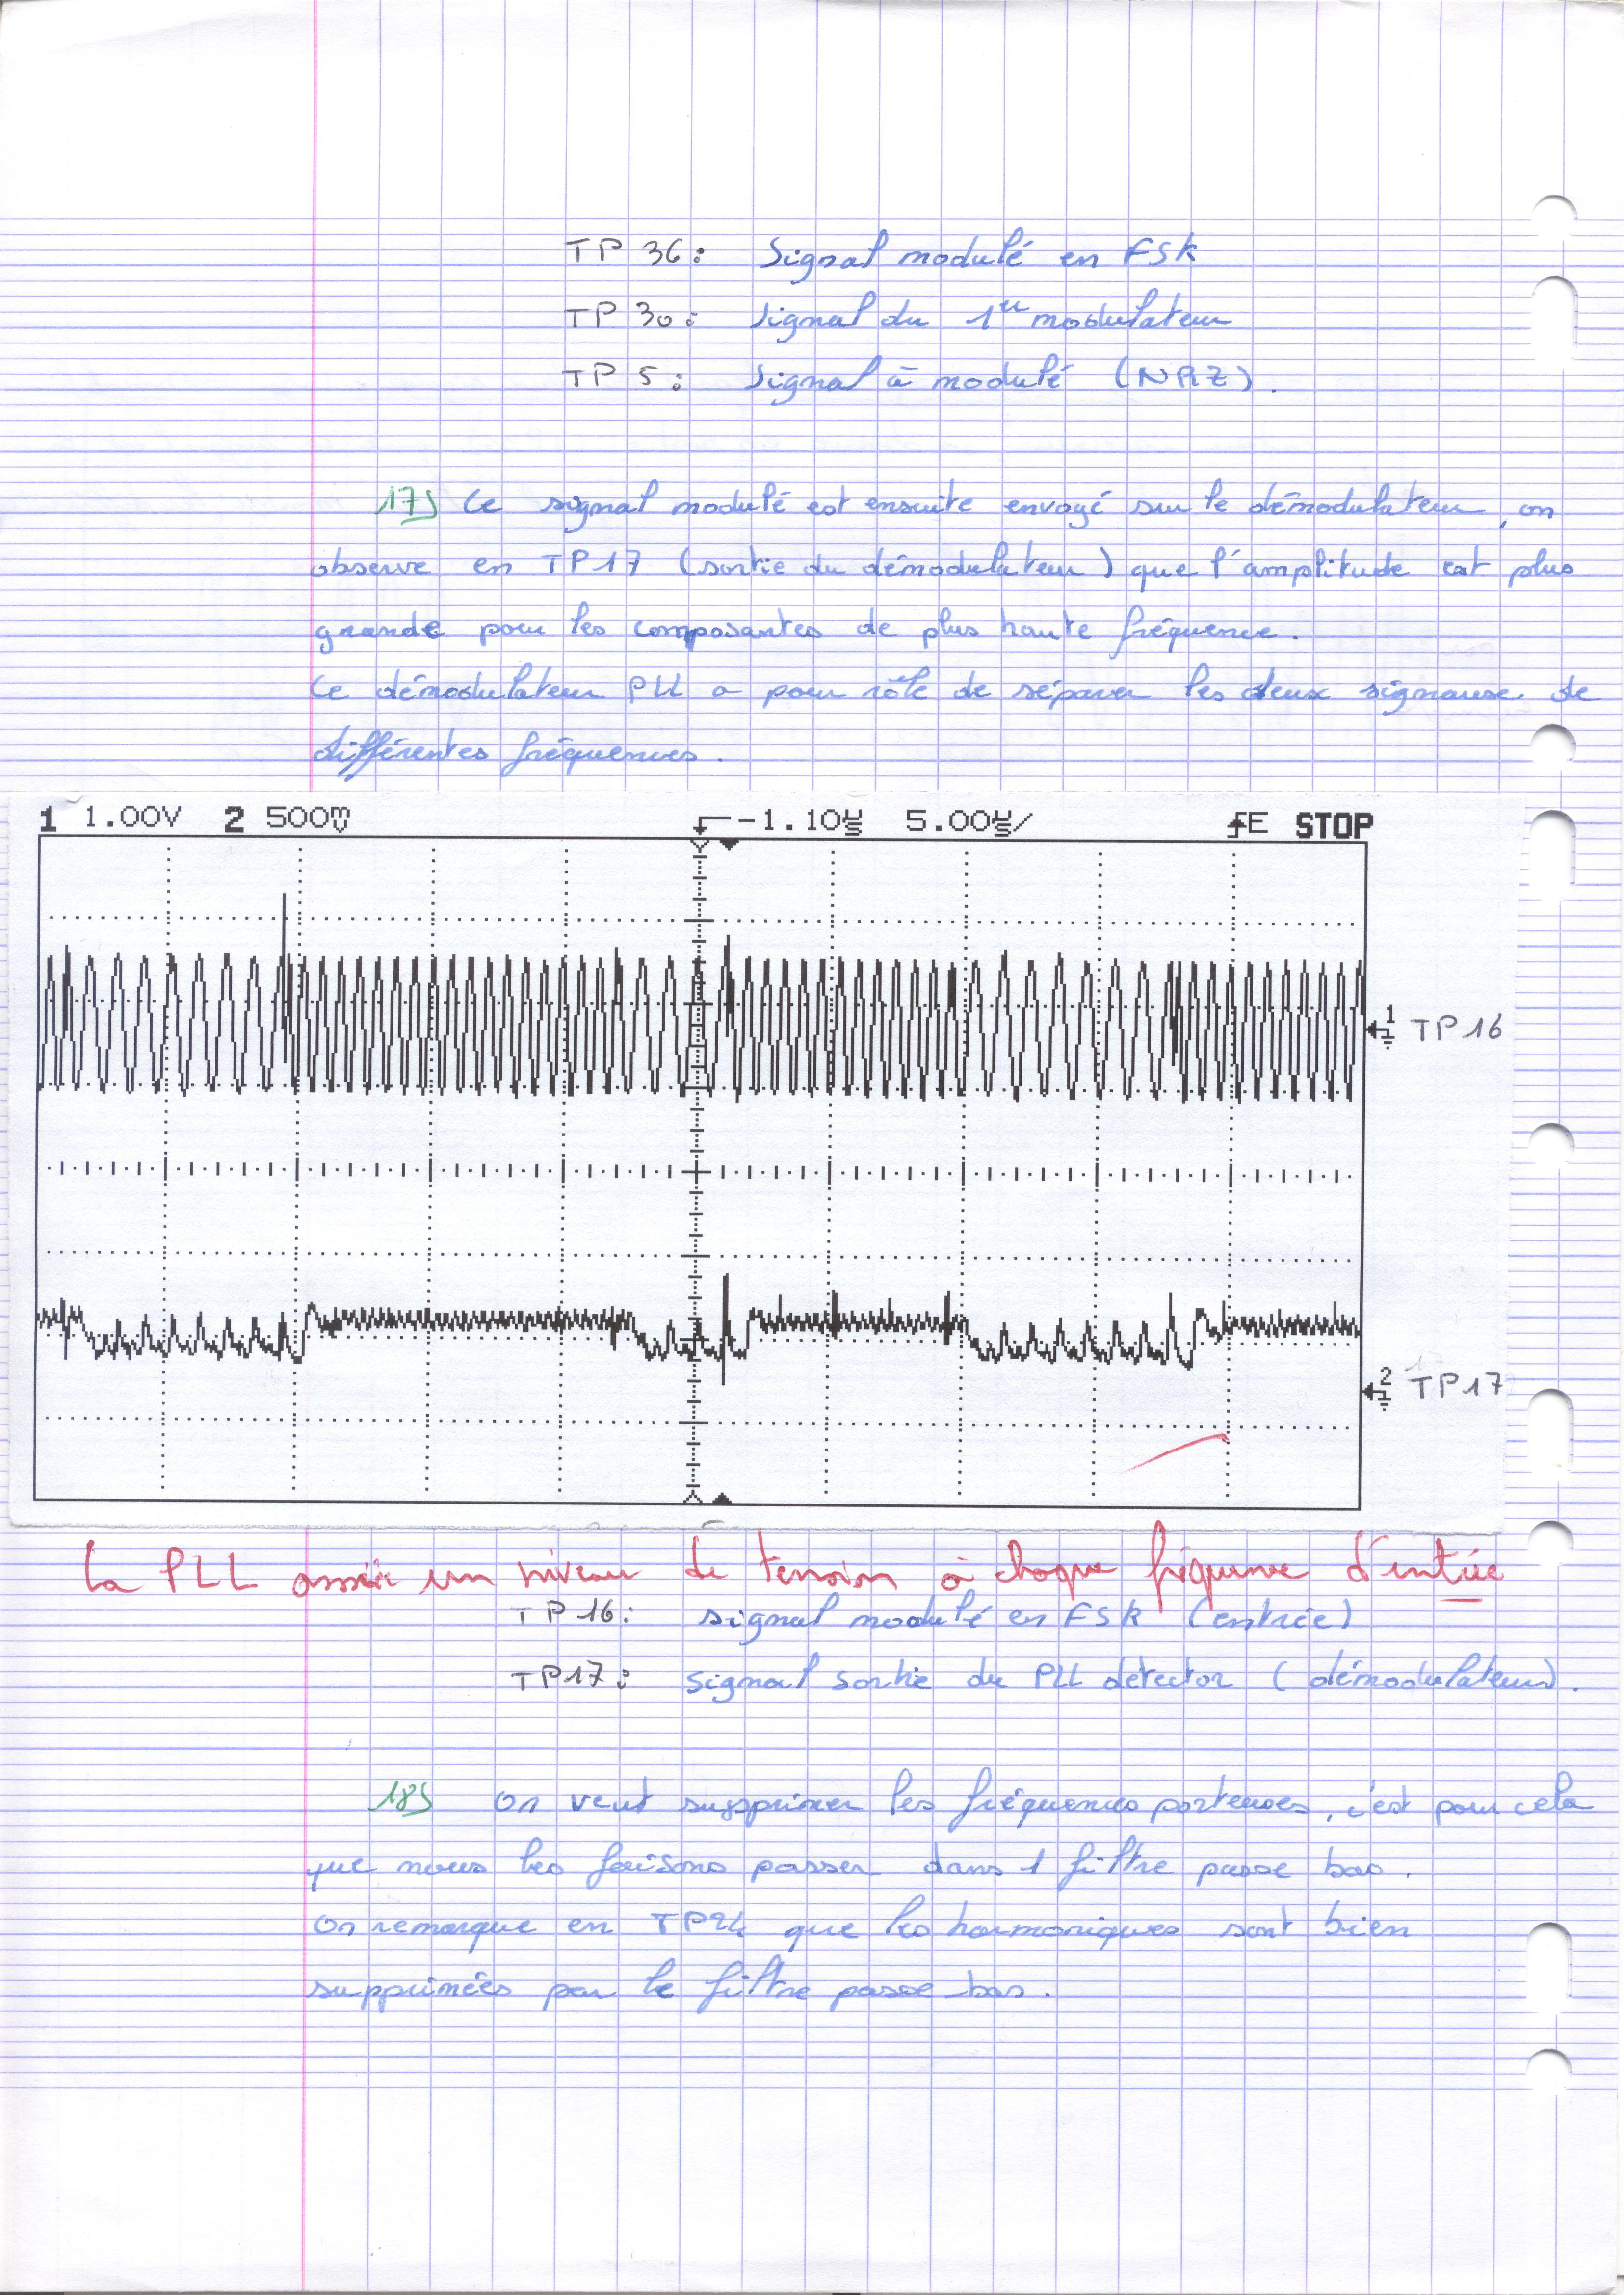 TP 36: Signal modulé en FSK
TP 30: Signal du 1er modulateur
TP 5: Signal à modulé (NRZ).
17) Ce signal modulé est ensuite envoyé sur le démodulateur, on
observe en TP17 (sortie du démodulateur) que l'amplitude est plus
grande pour les composantes de plus haute fréquence.
Ce démodulateur PLL a pour rôle de séparer les deux signause de
différentes fréquences.
1 1.00V 2 500mV -1.10µs 5.00µs/ E STOP
1 TP16
2 TP17
La PLL un niveau de tension à chaque fréquence d'entrée
TP16: signal modulé en FSK (entrée)
TP17: signal sortie du PLL detector (démodulateur).
18) On veut supprimer les fréquences porteuses, c'est pour cela
que nous les faisons passer dans 1 filtre passe bas.
On remarque en que les harmoniques sont bien
supprimées par le filtre passe-bas.